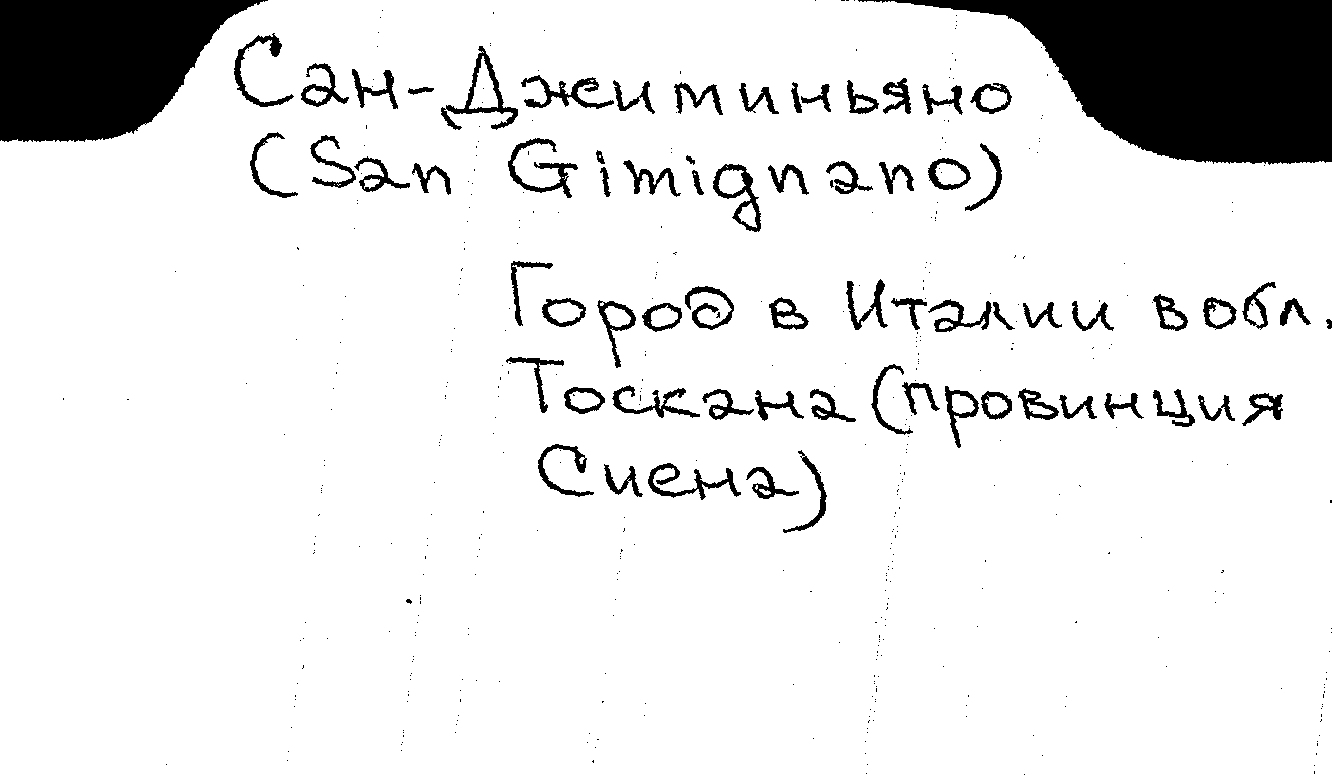 Сан-Джиминьяно
(San Gimignano)
Город в Италии в обл.
Тоскана (провинция
Сиена)